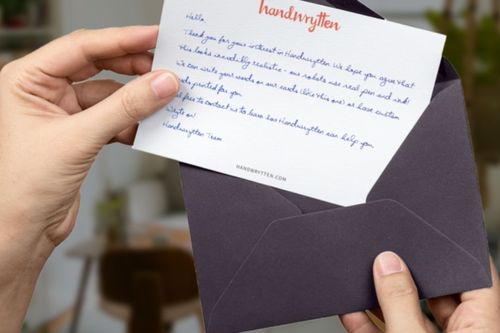 handwrytten
Hello,
Thank you for your interest in Handwrytten. We hope you agree that
this looks incredibly realistic - our robots use real pen and ink!
We can write your words on our cards (like this one) or have custom
cards printed for you.
Feel free to contact us to learn how Handwrytten can help you.
Write on!
Handwrytten Team
HANDWRYTTEN.COM